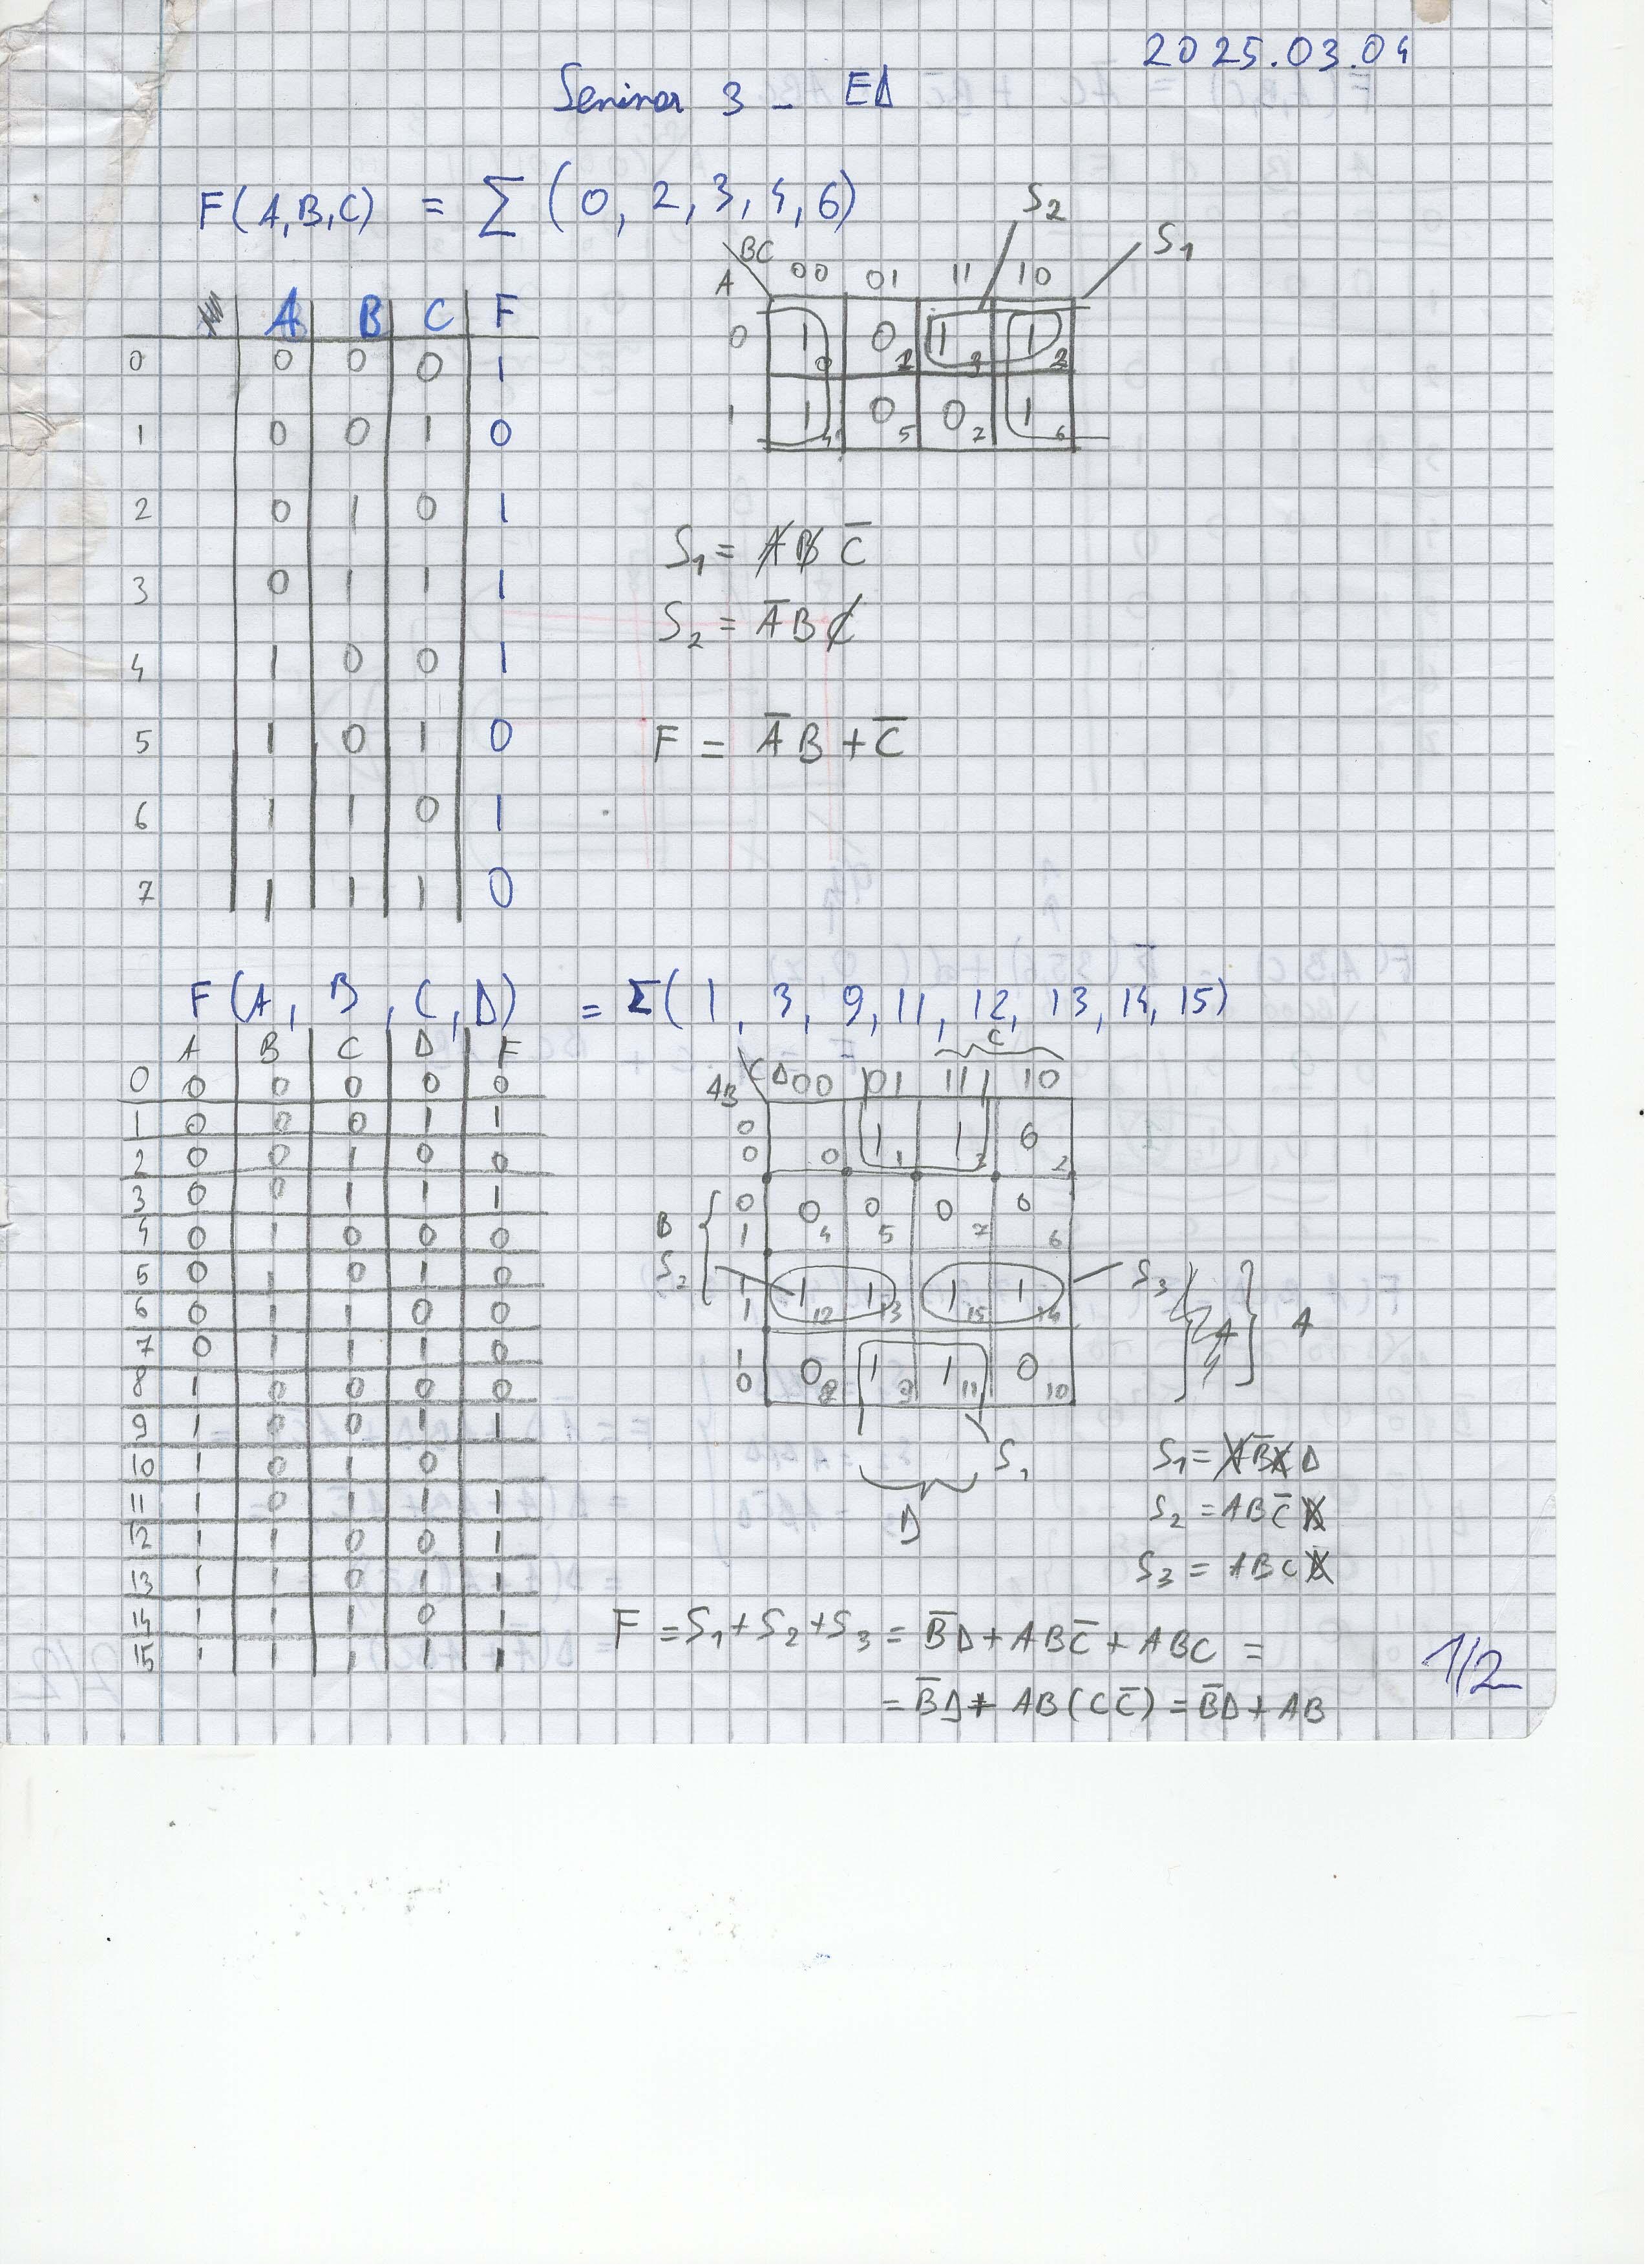 2025.03.04
Seminar 3 - ED
F(A,B,C) = ∑ (0, 2, 3, 4, 6)
A B C F
0 0 0 0 1
1 0 0 1 0
2 0 1 0 1
3 0 1 1 1
4 1 0 0 1
5 1 0 1 0
6 1 1 0 1
7 1 1 1 0
S₂
S₁
BC
A 00 01 11 10
0 1 0 0 1 1 3 1 2
1 1 4 0 5 0 7 1 6
S₁ = A B C̅
S₂ = A̅ B C
F = A̅ B + C̅
F(A, B, C, D) = Σ(1, 3, 9, 11, 12, 13, 14, 15)
A B C D F
0 0 0 0 0 0
1 0 0 0 1 1
2 0 0 1 0 0
3 0 0 1 1 1
4 0 1 0 0 0
5 0 1 0 1 0
6 0 1 1 0 0
7 0 1 1 1 0
8 1 0 0 0 0
9 1 0 0 1 1
10 1 0 1 0
11 1 0 1 1 1
12 1 1 0 0 1
13 1 1 0 1 1
14 1 1 1 0 1
15 1 1 1 1 1
C
AB CD 00 01 11 10
00 0 1 1 1 3 0 2
B 01 0 4 0 5 0 7 0 6
S₂ 11 1 12 1 13 1 15 1 14 S₃ A A
10 0 8 1 9 1 11 0 10
S₁
D
S₁ = A B̅ C D
S₂ = A B C̅ D
S₃ = A B C D
F = S₁ + S₂ + S₃ = B̅D + ABC̅ + ABC =
= B̅D + AB(CC̅) = B̅D + AB
1/2